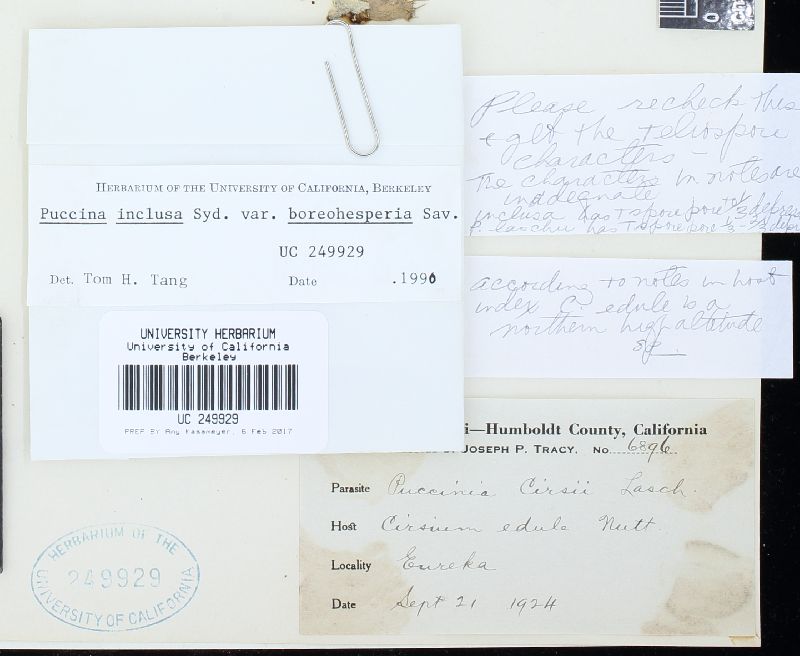 HERBARIUM OF THE UNIVERSITY OF CALIFORNIA, BERKELEY
Puccina inclusa Syd. var. boreohesperia Sav.
UC 249929
Det. Tom H. Tang Date .1990
UNIVERSITY HERBARIUM
University of California
Berkeley
UC 249929
PREP BY Amy Kasameyer, 6 Feb 2017
HERBARIUM OF THE
249929
UNIVERSITY OF CALIFORNIA
Please recheck this
+ get the teliospore
characters –
The characters in notes are
inadequate
inclusa has T spore pore
P. laschii has T spore pore
according to notes in host
index C. edule is a
northern high altitude
sp.
i—Humboldt County, California
JOSEPH P. TRACY. No. 6896
Parasite Puccinia Cirsii Lasch.
Host Cirsium edule Nutt.
Locality Eureka
Date Sept 21 1924